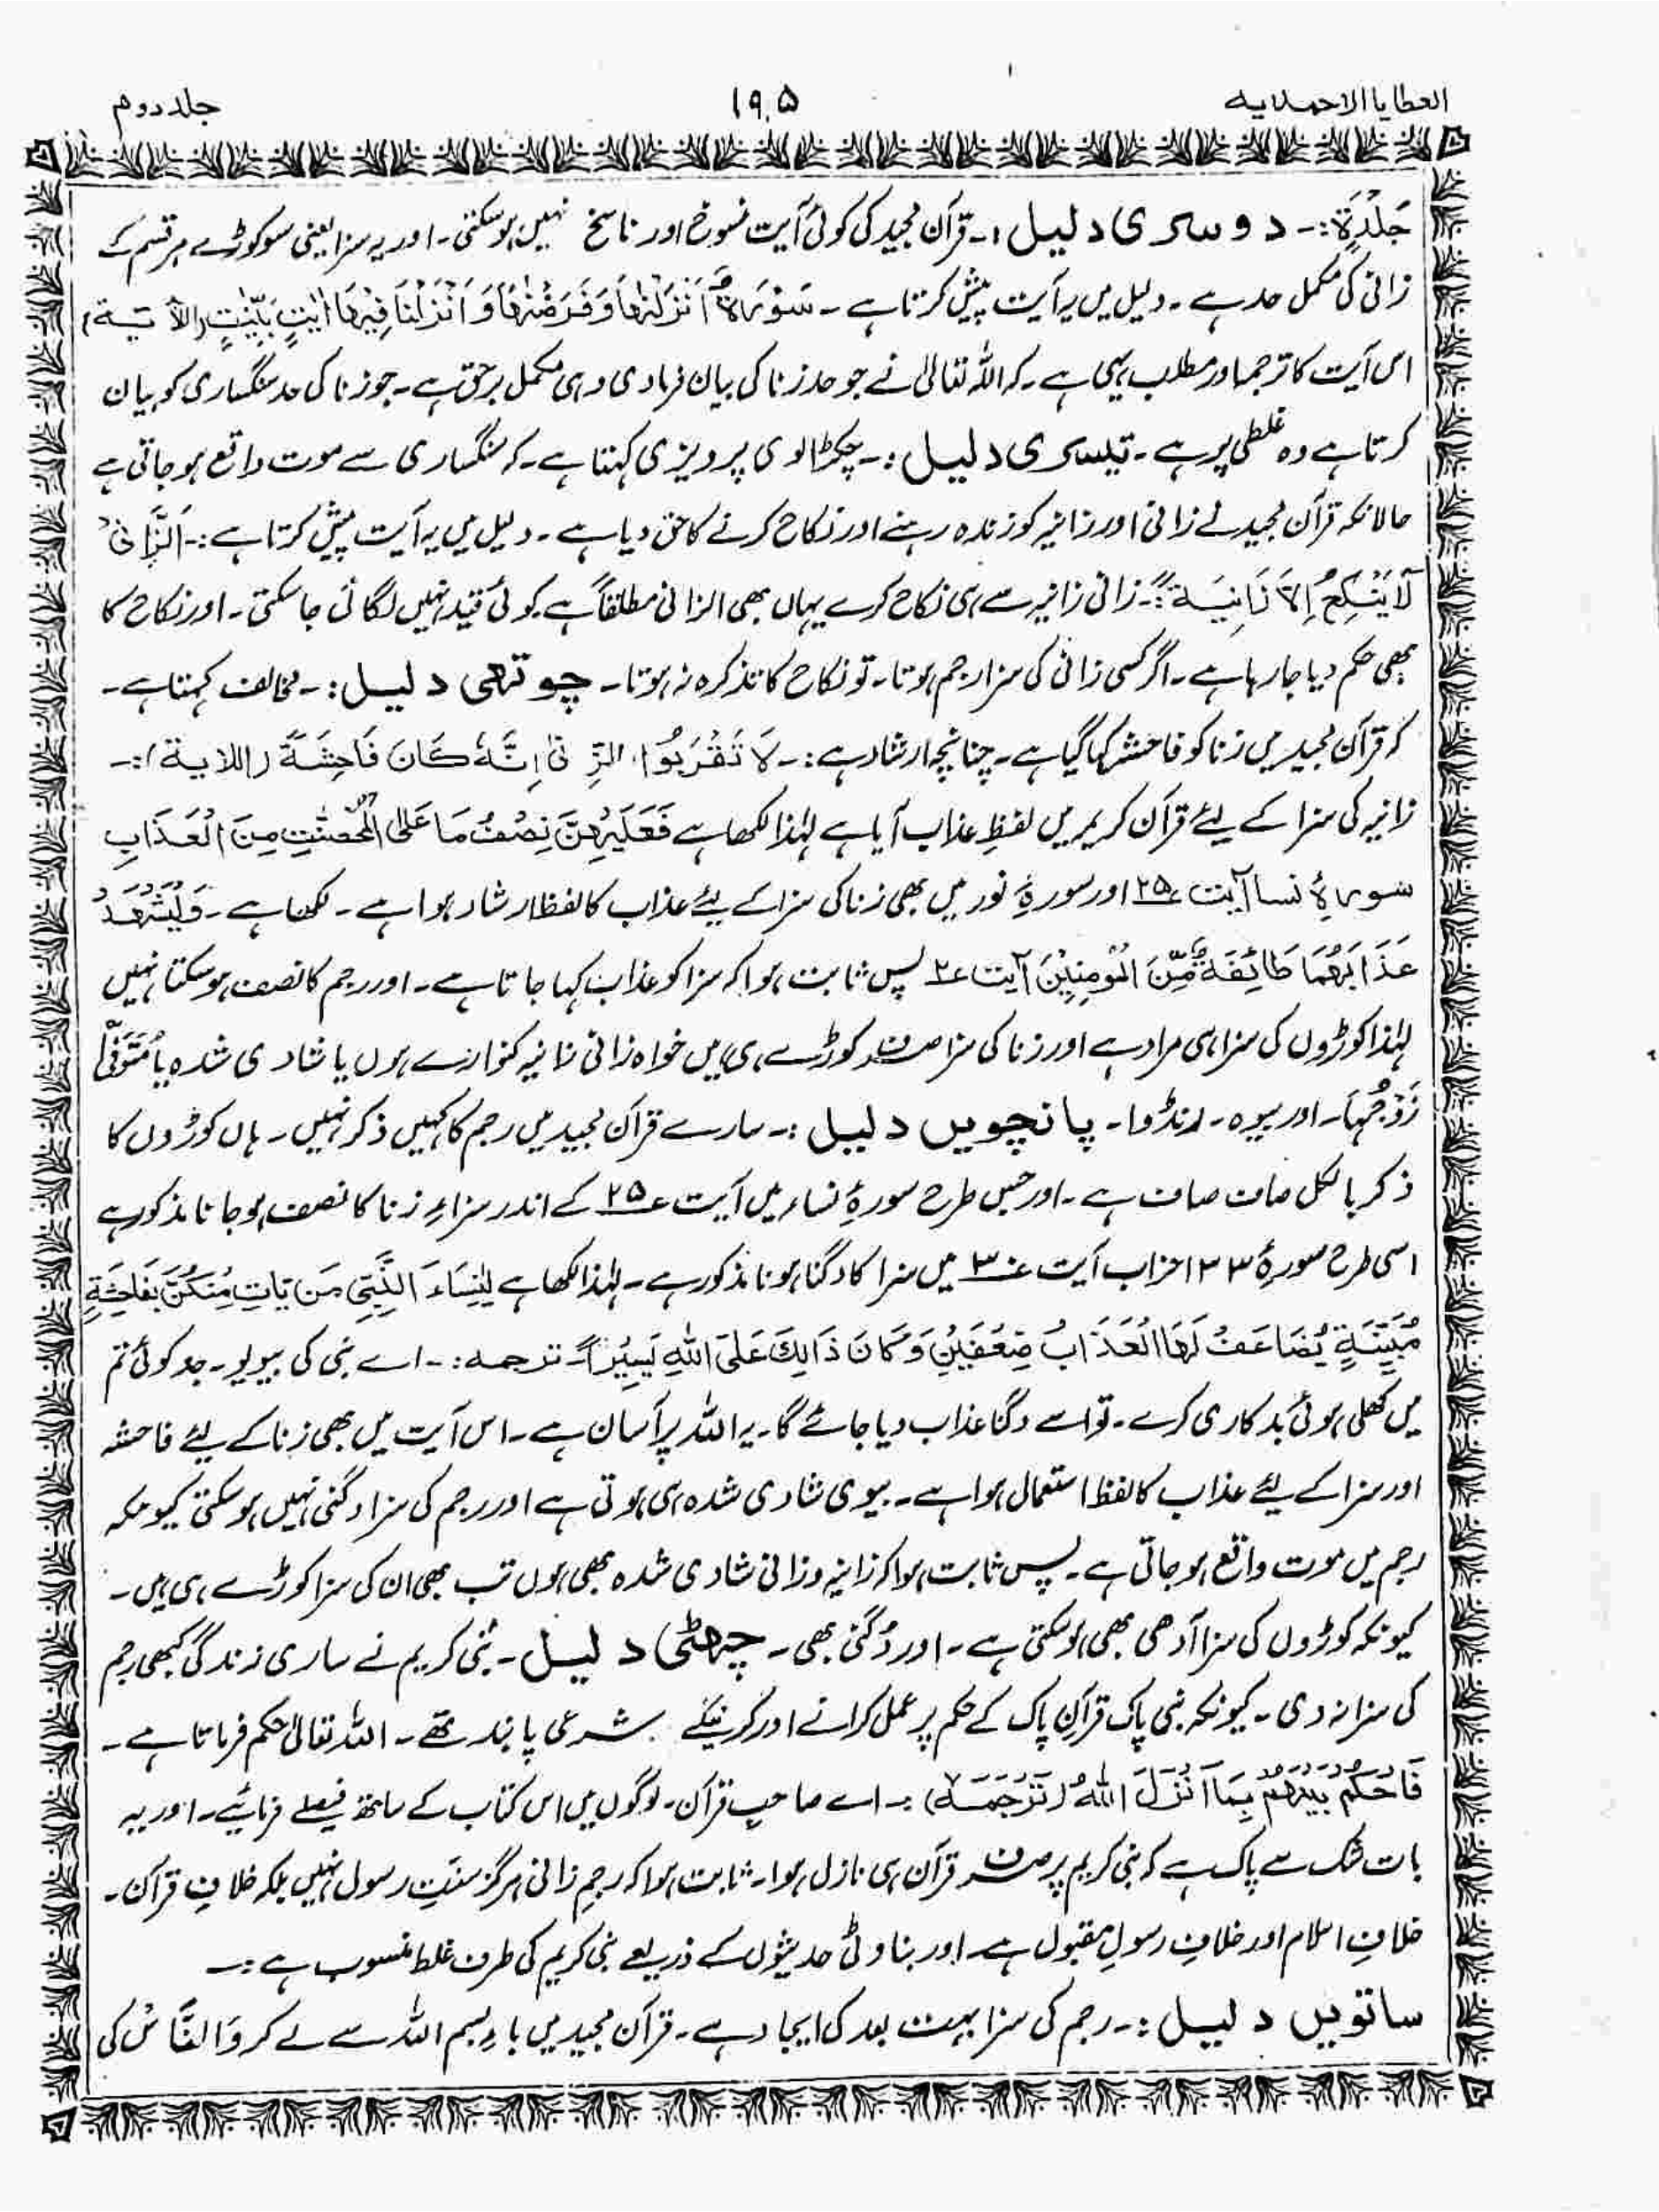 العطایا الاحمدیہ ۱۹۵ جلد دوم
جَلْدَۃٍ:۔ دوسری دلیل:۔ قرآن مجید کی کوئی آیت منسوخ اور ناسخ نہیں ہو سکتی۔ اور یہ سزا یعنی سو کوڑے ہر قسم کے
زانی کی مکمل حد ہے۔ دلیل میں یہ آیت پیش کرتا ہے۔ سُوْرَۃٌ اَنْزَلْنٰھَا وَفَرَضْنٰھَا وَ اَنْزَلْنَا فِیْھَا اٰیٰتٍ بَیِّنٰتٍ (الآیۃ)
اس آیت کا ترجمہ اور مطلب یہی ہے۔ کہ اللہ تعالیٰ نے جو حد زنا کی بیان فرما دی وہی مکمل برحق ہے۔ جو زنا کی حد سنگساری کو بیان
کرتا ہے وہ غلطی پر ہے۔ تیسری دلیل:۔ چکڑالوی پرویزی کہتا ہے۔ کہ سنگساری سے موت واقع ہو جاتی ہے
حالانکہ قرآن مجید نے زانی اور زانیہ کو زندہ رہنے اور نکاح کرنے کا حق دیا ہے۔ دلیل میں یہ آیت پیش کرتا ہے:۔ اَلزَّانِیْ
لَا یَنْکِحُ اِلَّا زَانِیَۃً:۔ زانی زانیہ سے ہی نکاح کرے یہاں بھی الزانی مطلقاً ہے کوئی قید نہیں لگائی جا سکتی۔ اور نکاح کا
بھی حکم دیا جا رہا ہے۔ اگر کسی زانی کی سزا رجم ہوتا۔ تو نکاح کا تذکرہ نہ ہوتا۔ چوتھی دلیل:۔ مخالف کہتا ہے۔
کہ قرآن مجید میں زنا کو فاحشہ کہا گیا ہے۔ چنانچہ ارشاد ہے:۔ لَا تَقْرَبُوا الزِّنٰی اِنَّہٗ کَانَ فَاحِشَۃً (اللایۃ):۔
زانیہ کی سزا کے لئے قرآن کریم میں لفظِ عذاب آیا ہے لہٰذا لکھا ہے فَعَلَیْھِنَّ نِصْفُ مَا عَلَی الْمُحْصَنٰتِ مِنَ الْعَذَابِ
سورۂ نسا آیت ۲۵ اور سورۂ نور میں بھی زنا کی سزا کے لیئے عذاب کا لفظ ارشاد ہوا ہے۔ لکھا ہے۔ وَلْیَشْھَدْ
عَذَابَھُمَا طَائِفَۃٌ مِّنَ الْمُومِنِیْنَ آیت ۲ پس ثابت ہوا کہ سزا کو عذاب کہا جاتا ہے۔ اور رجم کا نصف ہو سکتا نہیں
لہٰذا کوڑوں کی سزا ہی مراد ہے اور زنا کی سزا صرف کوڑے ہی ہیں خواہ زانی زانیہ کنوارے ہوں یا شادی شدہ یا مُتَوَفّٰی
زَوْجُہَا۔ اور بیوہ۔ رنڈوا۔ پانچویں دلیل:۔ سارے قرآن مجید میں رجم کا کہیں ذکر نہیں۔ ہاں کوڑوں کا
ذکر بالکل صاف صاف ہے۔ اور جس طرح سورۂ نساء میں آیت ۲۵ کے اندر سزاءِ زنا کا نصف ہو جانا مذکور ہے
اسی طرح سورۂ ۳۳ احزاب آیت ۳۰ میں سزا کا دگنا ہونا مذکور ہے۔ لہٰذا لکھا ہے یٰنِسَاءَ النَّبِیِّ مَن یَّاتِ مِنْکُنَّ بِفَاحِشَۃٍ
مُّبَیِّنَۃٍ یُّضَاعَفْ لَھَا الْعَذَابُ ضِعْفَیْنِ وَ کَانَ ذَالِکَ عَلَی اللہِ یَسِیْرًا۔ ترجمہ:۔ اے نبی کی بیویو۔ جو کوئی تم
میں کھلی ہوئی بدکاری کرے۔ تو اسے دگنا عذاب دیا جائے گا۔ یہ اللہ پر آسان ہے۔ اس آیت میں بھی زنا کے لیئے فاحشہ
اور سزا کے لیئے عذاب کا لفظ استعمال ہوا ہے۔ بیوی شادی شدہ ہی ہوتی ہے اور رجم کی سزا دگنی نہیں ہو سکتی کیونکہ
رجم میں موت واقع ہو جاتی ہے۔ پس ثابت ہوا کہ زانیہ و زانی شادی شدہ بھی ہوں تب بھی ان کی سزا کوڑے ہی ہیں۔
کیونکہ کوڑوں کی سزا آدھی بھی ہو سکتی ہے۔ اور دُگنی بھی۔ چھٹی دلیل۔ نبی کریم نے ساری زندگی کبھی رجم
کی سزا نہ دی۔ کیونکہ نبی پاک قرآنِ پاک کے حکم پر عمل کرانے اور کرنیکے شرعی پابند تھے۔ اللہ تعالیٰ حکم فرماتا ہے۔
فَاحْکُمْ بَیْنَھُمْ بِمَا اَنْزَلَ اللہُ (تَرْجَمَہ):۔ اے صاحبِ قرآن۔ لوگوں میں اس کتاب کے ساتھ فیصلے فرمائیے۔ اور یہ
بات شک سے پاک ہے کہ نبی کریم پر صرف قرآن ہی نازل ہوا۔ ثابت ہوا کہ رجمِ زانی ہرگز سنتِ رسول نہیں بلکہ خلافِ قرآن۔
خلافِ اسلام اور خلافِ رسولِ مقبول ہے۔ اور بناوٹی حدیثوں کے ذریعے نبی کریم کی طرف غلط منسوب ہے:۔
ساتویں دلیل:۔ رجم کی سزا بہت بعد کی ایجاد ہے۔ قرآن مجید میں باءِ بسم اللہ سے لے کر وَالنَّاسْ کی